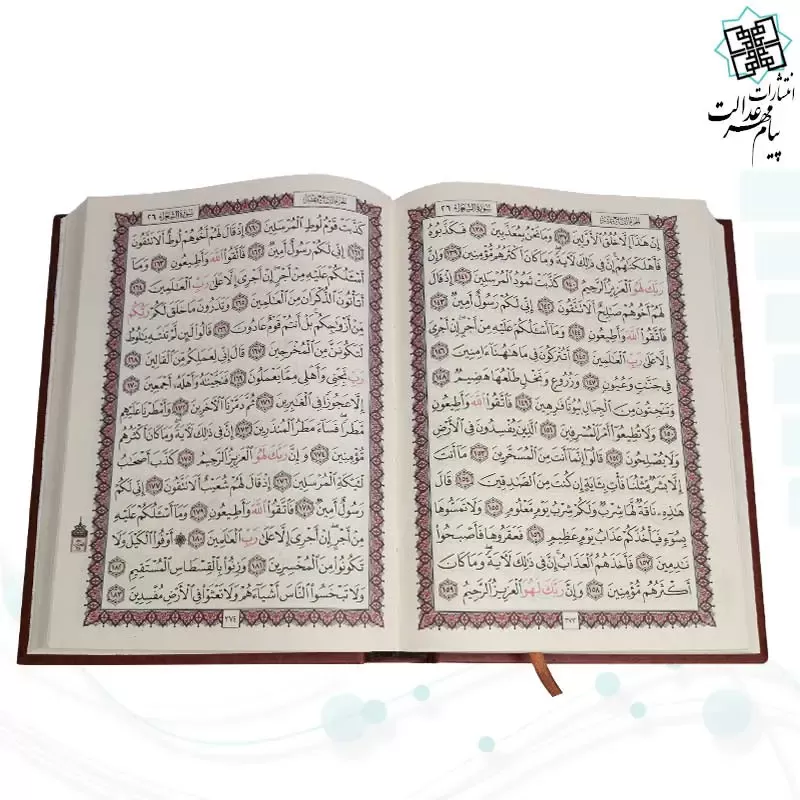 انتشارات
پیام مهر عدالت
الجزء التاسع عشر
سورة الشعراء ٢٦
إِنْ هَٰذَا إِلَّا خُلُقُ الْأَوَّلِينَ ١٣٧ وَمَا نَحْنُ بِمُعَذَّبِينَ ١٣٨ فَكَذَّبُوهُ
فَأَهْلَكْنَاهُمْ إِنَّ فِي ذَٰلِكَ لَآيَةً وَمَا كَانَ أَكْثَرُهُمْ مُؤْمِنِينَ ١٣٩ وَإِنَّ
رَبَّكَ لَهُوَ الْعَزِيزُ الرَّحِيمُ ١٤٠ كَذَّبَتْ ثَمُودُ الْمُرْسَلِينَ ١٤١ إِذْ قَالَ
لَهُمْ أَخُوهُمْ صَالِحٌ أَلَا تَتَّقُونَ ١٤٢ إِنِّي لَكُمْ رَسُولٌ أَمِينٌ ١٤٣
فَاتَّقُوا اللَّهَ وَأَطِيعُونِ ١٤٤ وَمَا أَسْئَلُكُمْ عَلَيْهِ مِنْ أَجْرٍ إِنْ أَجْرِيَ
إِلَّا عَلَىٰ رَبِّ الْعَالَمِينَ ١٤٥ أَتُتْرَكُونَ فِي مَا هَاهُنَا آمِنِينَ ١٤٦
فِي جَنَّاتٍ وَعُيُونٍ ١٤٧ وَزُرُوعٍ وَنَخْلٍ طَلْعُهَا هَضِيمٌ ١٤٨
وَتَنْحِتُونَ مِنَ الْجِبَالِ بُيُوتًا فَارِهِينَ ١٤٩ فَاتَّقُوا اللَّهَ وَأَطِيعُونِ
١٥٠ وَلَا تُطِيعُوا أَمْرَ الْمُسْرِفِينَ ١٥١ الَّذِينَ يُفْسِدُونَ فِي الْأَرْضِ
وَلَا يُصْلِحُونَ ١٥٢ قَالُوا إِنَّمَا أَنْتَ مِنَ الْمُسَحَّرِينَ ١٥٣ مَا أَنْتَ
إِلَّا بَشَرٌ مِثْلُنَا فَأْتِ بِآيَةٍ إِنْ كُنْتَ مِنَ الصَّادِقِينَ ١٥٤ قَالَ
هَٰذِهِ نَاقَةٌ لَهَا شِرْبٌ وَلَكُمْ شِرْبُ يَوْمٍ مَعْلُومٍ ١٥٥ وَلَا تَمَسُّوهَا
بِسُوءٍ فَيَأْخُذَكُمْ عَذَابُ يَوْمٍ عَظِيمٍ ١٥٦ فَعَقَرُوهَا فَأَصْبَحُوا
نَادِمِينَ ١٥٧ فَأَخَذَهُمُ الْعَذَابُ إِنَّ فِي ذَٰلِكَ لَآيَةً وَمَا كَانَ
أَكْثَرُهُمْ مُؤْمِنِينَ ١٥٨ وَإِنَّ رَبَّكَ لَهُوَ الْعَزِيزُ الرَّحِيمُ ١٥٩
٣٧٣
الجزء التاسع عشر
سورة الشعراء ٢٦
كَذَّبَتْ قَوْمُ لُوطٍ الْمُرْسَلِينَ ١٦٠ إِذْ قَالَ لَهُمْ أَخُوهُمْ لُوطٌ أَلَا تَتَّقُونَ
١٦١ إِنِّي لَكُمْ رَسُولٌ أَمِينٌ ١٦٢ فَاتَّقُوا اللَّهَ وَأَطِيعُونِ ١٦٣ وَمَا
أَسْئَلُكُمْ عَلَيْهِ مِنْ أَجْرٍ إِنْ أَجْرِيَ إِلَّا عَلَىٰ رَبِّ الْعَالَمِينَ ١٦٤
أَتَأْتُونَ الذُّكْرَانَ مِنَ الْعَالَمِينَ ١٦٥ وَتَذَرُونَ مَا خَلَقَ لَكُمْ رَبُّكُمْ
مِنْ أَزْوَاجِكُمْ بَلْ أَنْتُمْ قَوْمٌ عَادُونَ ١٦٦ قَالُوا لَئِنْ لَمْ تَنْتَهِ يَا لُوطُ
لَتَكُونَنَّ مِنَ الْمُخْرَجِينَ ١٦٧ قَالَ إِنِّي لِعَمَلِكُمْ مِنَ الْقَالِينَ ١٦٨
رَبِّ نَجِّنِي وَأَهْلِي مِمَّا يَعْمَلُونَ ١٦٩ فَنَجَّيْنَاهُ وَأَهْلَهُ أَجْمَعِينَ ١٧٠
إِلَّا عَجُوزًا فِي الْغَابِرِينَ ١٧١ ثُمَّ دَمَّرْنَا الْآخَرِينَ ١٧٢ وَأَمْطَرْنَا عَلَيْهِمْ
مَطَرًا فَسَاءَ مَطَرُ الْمُنْذَرِينَ ١٧٣ إِنَّ فِي ذَٰلِكَ لَآيَةً وَمَا كَانَ أَكْثَرُهُمْ
مُؤْمِنِينَ ١٧٤ وَإِنَّ رَبَّكَ لَهُوَ الْعَزِيزُ الرَّحِيمُ ١٧٥ كَذَّبَ أَصْحَابُ
لْئَيْكَةِ الْمُرْسَلِينَ ١٧٦ إِذْ قَالَ لَهُمْ شُعَيْبٌ أَلَا تَتَّقُونَ ١٧٧ إِنِّي لَكُمْ
رَسُولٌ أَمِينٌ ١٧٨ فَاتَّقُوا اللَّهَ وَأَطِيعُونِ ١٧٩ وَمَا أَسْئَلُكُمْ عَلَيْهِ
مِنْ أَجْرٍ إِنْ أَجْرِيَ إِلَّا عَلَىٰ رَبِّ الْعَالَمِينَ ١٨٠ ۞ أَوْفُوا الْكَيْلَ وَلَا
تَكُونُوا مِنَ الْمُخْسِرِينَ ١٨١ وَزِنُوا بِالْقِسْطَاسِ الْمُسْتَقِيمِ ١٨٢
وَلَا تَبْخَسُوا النَّاسَ أَشْيَاءَهُمْ وَلَا تَعْثَوْا فِي الْأَرْضِ مُفْسِدِينَ ١٨٣
٣٧٤